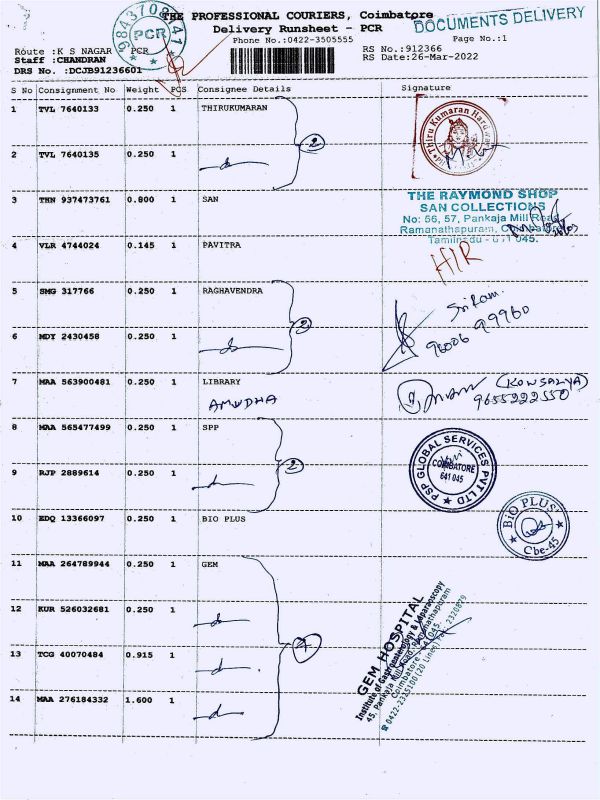 THE PROFESSIONAL COURIERS, Coimbatore
DOCUMENTS DELIVERY
Delivery Runsheet - PCR
Phone No.:0422-3505555
Page No.:1
PCR
Route :K S NAGAR PCR
RS No.:912366
Staff :CHANDRAN
RS Date:26-Mar-2022
DRS No. :DCJB91236601
S No Consignment No Weight PCS Consignee Details Signature
1 TVL 7640133 0.250 1 THIRUKUMARAN
Thiru Kumaran
2
2 TVL 7640135 0.250 1
3 THN 937473761 0.800 1 SAN
THE RAYMOND SHOP
SAN COLLECTIONS
No: 56, 57, Pankaja Mill Road
Ramanathapuram, Coimbatore
Tamilnadu - 641 045.
4 VLR 4744024 0.145 1 PAVITRA
H/R
5 SMG 317766 0.250 1 RAGHAVENDRA
Sriram.
2
98006 99960
6 MDY 2430458 0.250 1
7 MAA 563900481 0.250 1 LIBRARY
AMUDHA
(KOWSALYA)
9655222550
8 MAA 565477499 0.250 1 SPP
2
PSP GLOBAL SERVICES PVT LTD
COIMBATORE
641 045
9 RJP 2889614 0.250 1
10 EDQ 13366097 0.250 1 BIO PLUS
BIO PLUS
Cbe-45
11 MAA 264789944 0.250 1 GEM
12 KUR 526032681 0.250 1
13 TCG 40070484 0.915 1
14 MAA 276184332 1.600 1
GEM HOSPITAL
Institute of Gastroenterology & Laparoscopy
45, Pankaja Mill Road, Ramanathapuram
Coimbatore - 641 045.
0422-2325100 (20 Lines) 2320879